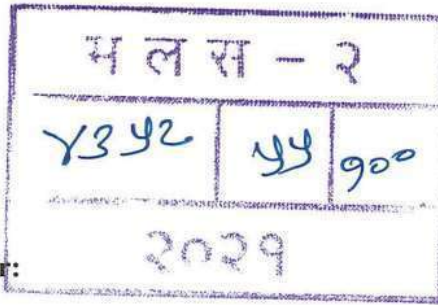 म ल स - २
४३५२ ५५ १००
२०२१